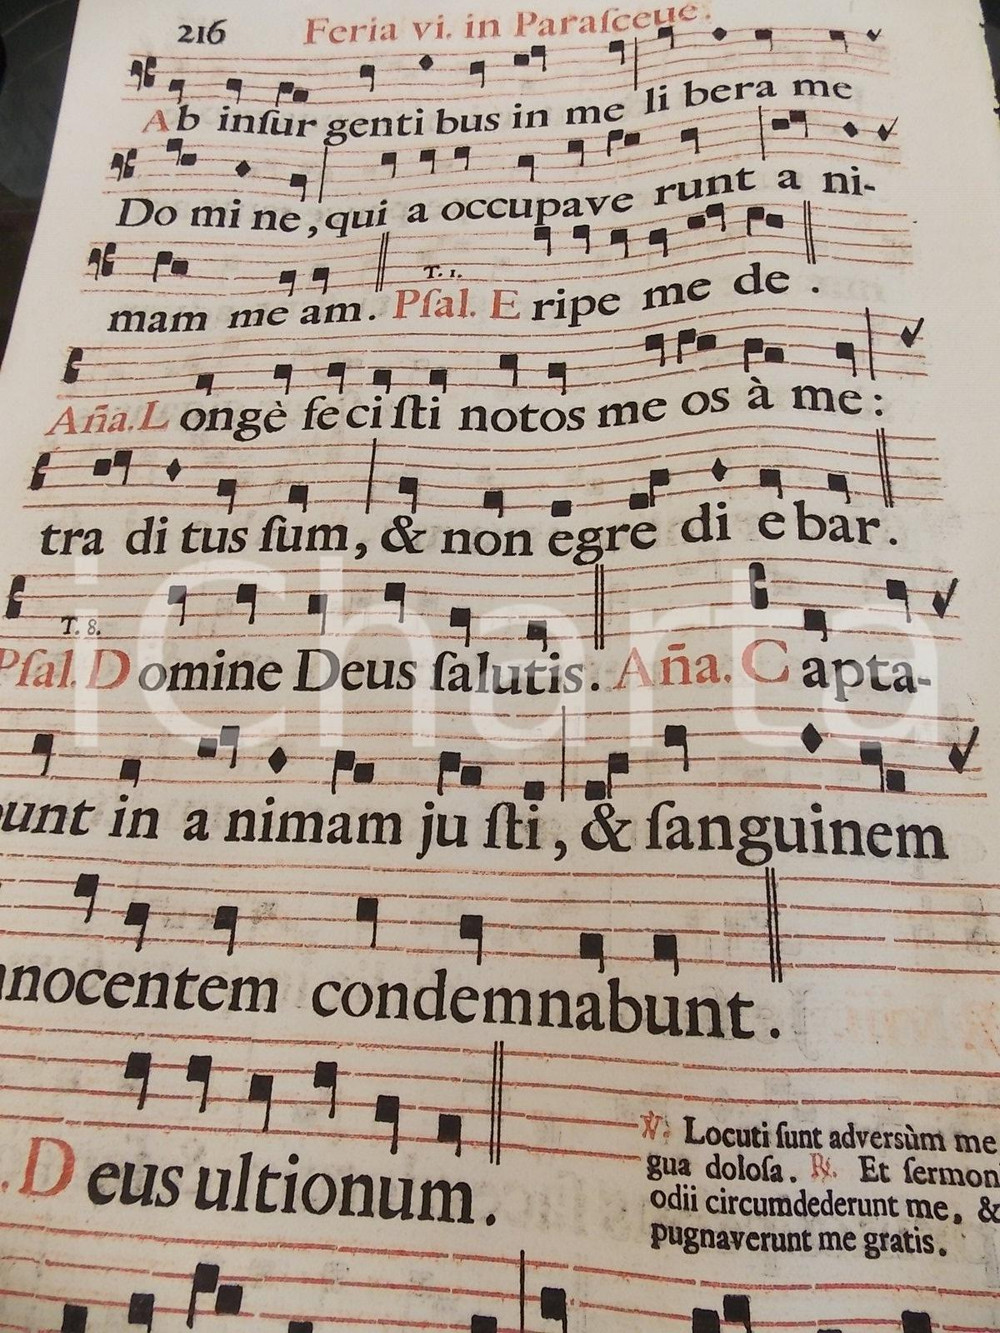 216 Feria vi. in Paraſceue.
Ab inſur genti bus in me li bera me
Do mi ne, qui a occupave runt a ni-
mam me am. Pſal. E ripe me de .
T. 1.
Aña. L ongè feci ſti notos me os à me:
tra di tus ſum, & non egre di e bar.
T. 8.
Pſal. Domine Deus ſalutis. Aña. C apta-
unt in a nimam ju ſti, & ſanguinem
nnocentem condemnabunt.
. D eus ultionum.
℣. Locuti ſunt adversùm me
gua doloſa. ℟. Et ſermon
odii circumdederunt me, &
pugnaverunt me gratis.
iCharta